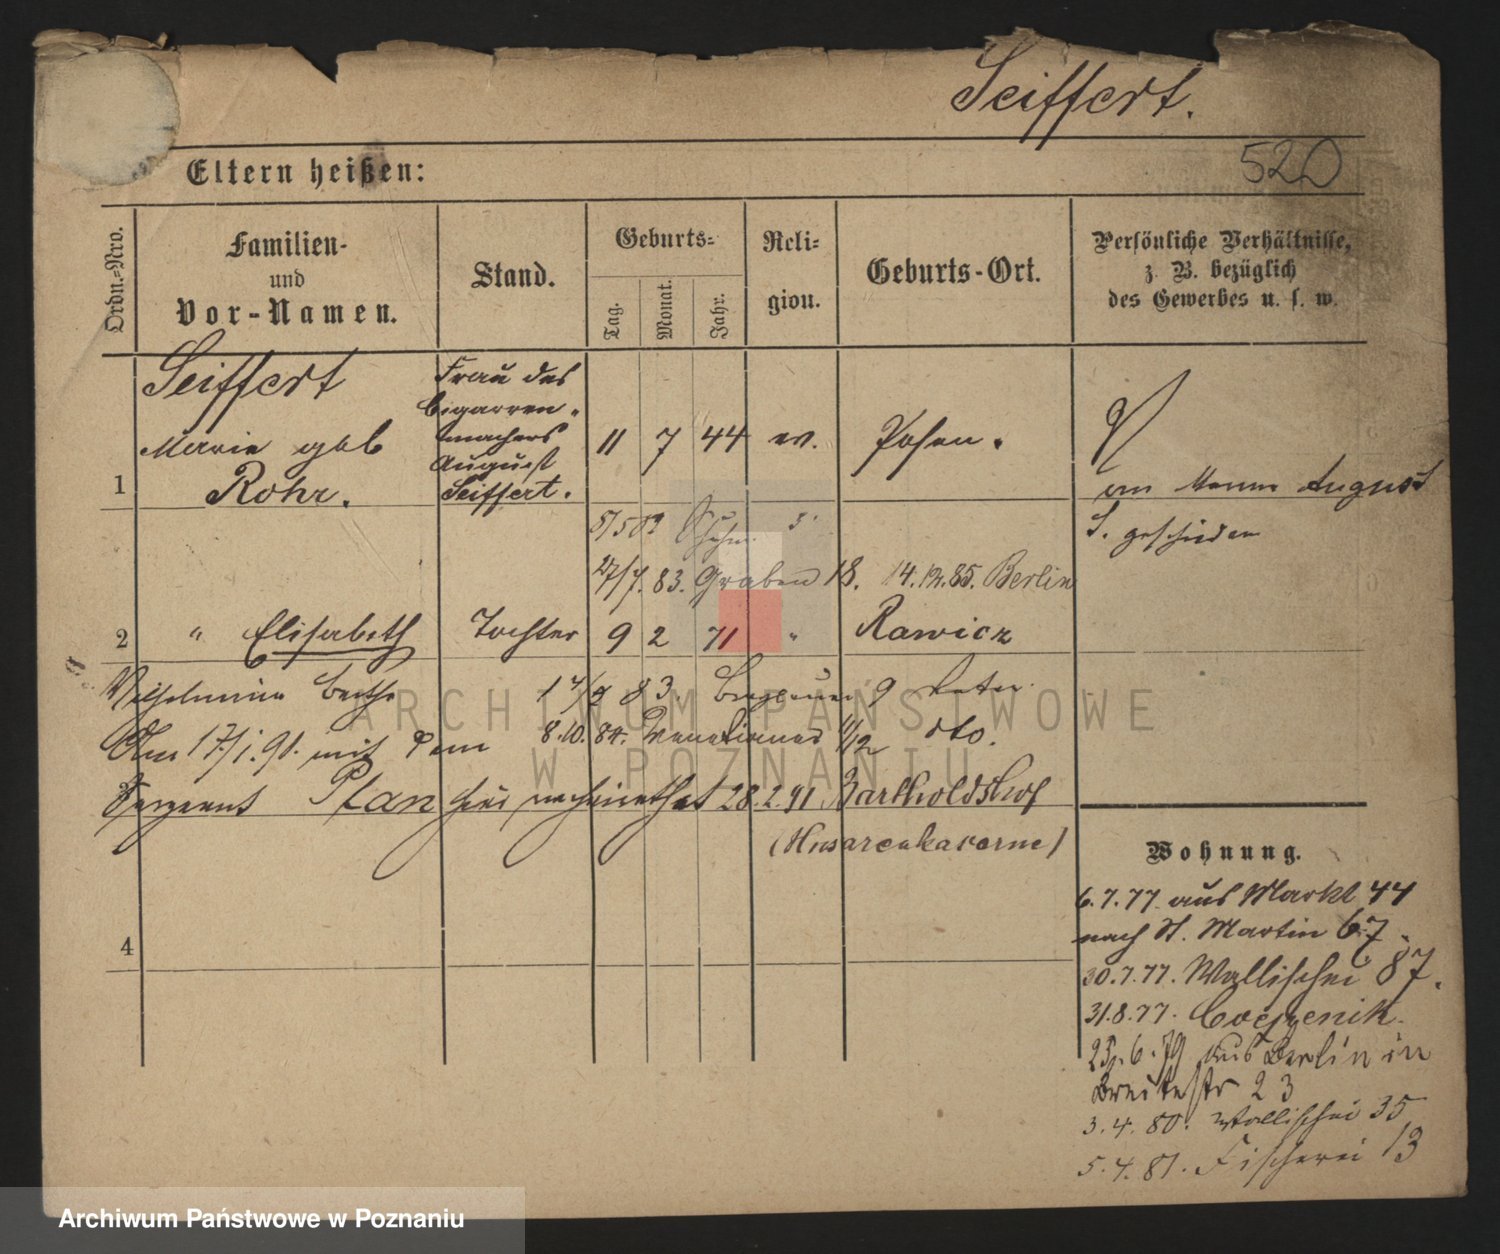 Seiffert.
520
Eltern heißen:
Ordn.-Nro.
Familien-
und
Vor-Namen.
Stand.
Geburts-
Tag.
Monat.
Jahr.
Reli-
gion.
Geburts-Ort.
Persönliche Verhältnisse,
z. B. bezüglich
des Gewerbes u. s. w.
1
Seiffert
Marie geb
Rohr.
Frau des
Cigarren-
machers
August
Seiffert.
11 7 44 ev. Posen.
vom Manne August
S. geschieden
27/7. 83. Graben 18. 14.12.85. Berlin
2 " Elisabeth Tochter 9 2 71 " Rawicz
Wilhelmine Bertha
8.10. 84. Venetianer 11/12 dto.
Am 17/1.91. mit dem
Sergeant Plan hier verheirathet 28.2.91 Bartholdshof
(Husarenkaserne)
4
Wohnung.
6.7.77. aus Markt 44
nach St. Martin 67.
30.7.77. Wallischei 87.
31.8.77. Coepenik.
25.6.79 aus Berlin in
Breitestr 23
3.4.80. Wallischei 35
5.4.81. Fischerei 13
ARCHIWUM PAŃSTWOWE
W POZNANIU
Archiwum Państwowe w Poznaniu